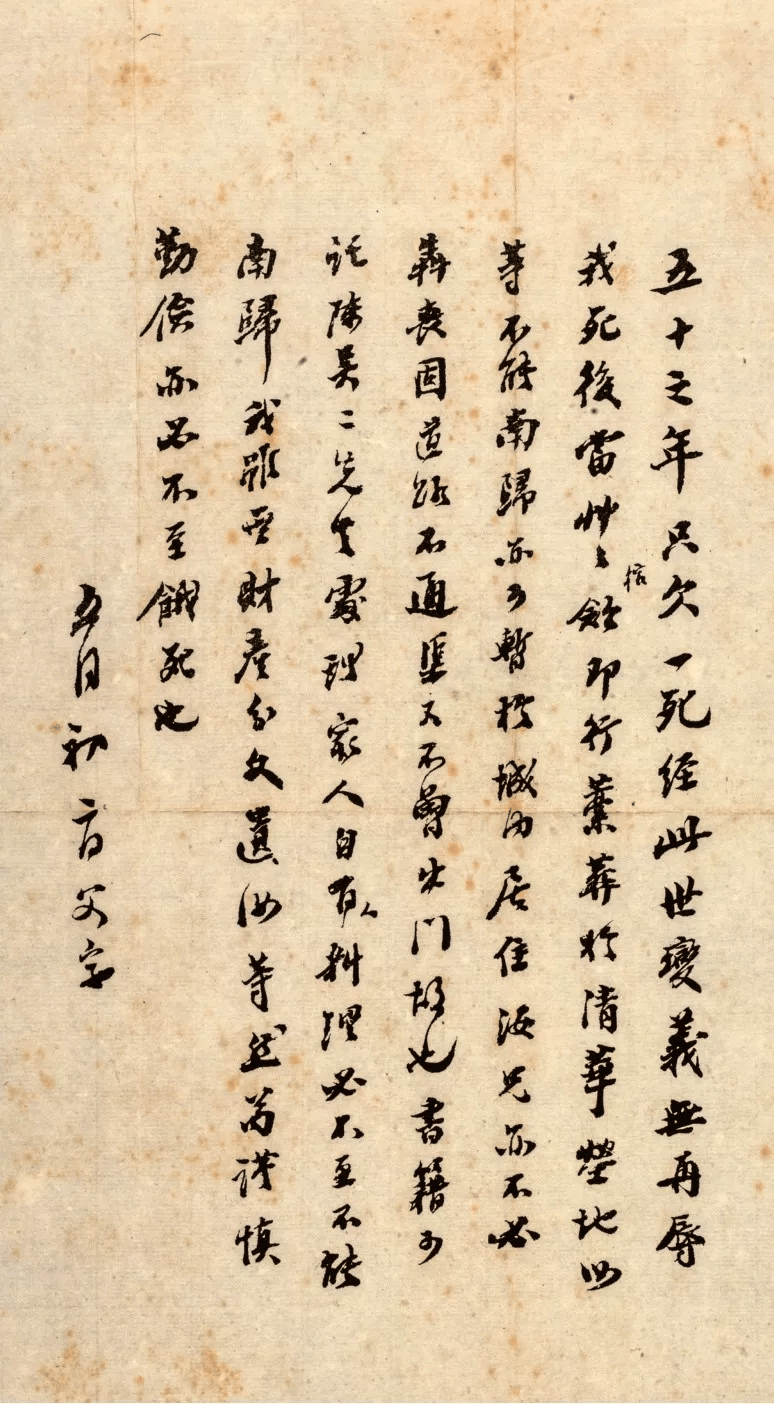 五十之年只欠一死經此世變義無再辱
我死後當草々棺殮即行藁葬於清華塋地汝
等不能南歸亦可暫於城內居住汝兄亦不必
奔喪因道路不通渠又不曾出門故也書籍可
託陳吳二先生處理家人自有人料理必不至不能
南歸我雖無財產分文遺汝等然苟謹慎
勤儉亦必不至餓死也
五月初二日父字